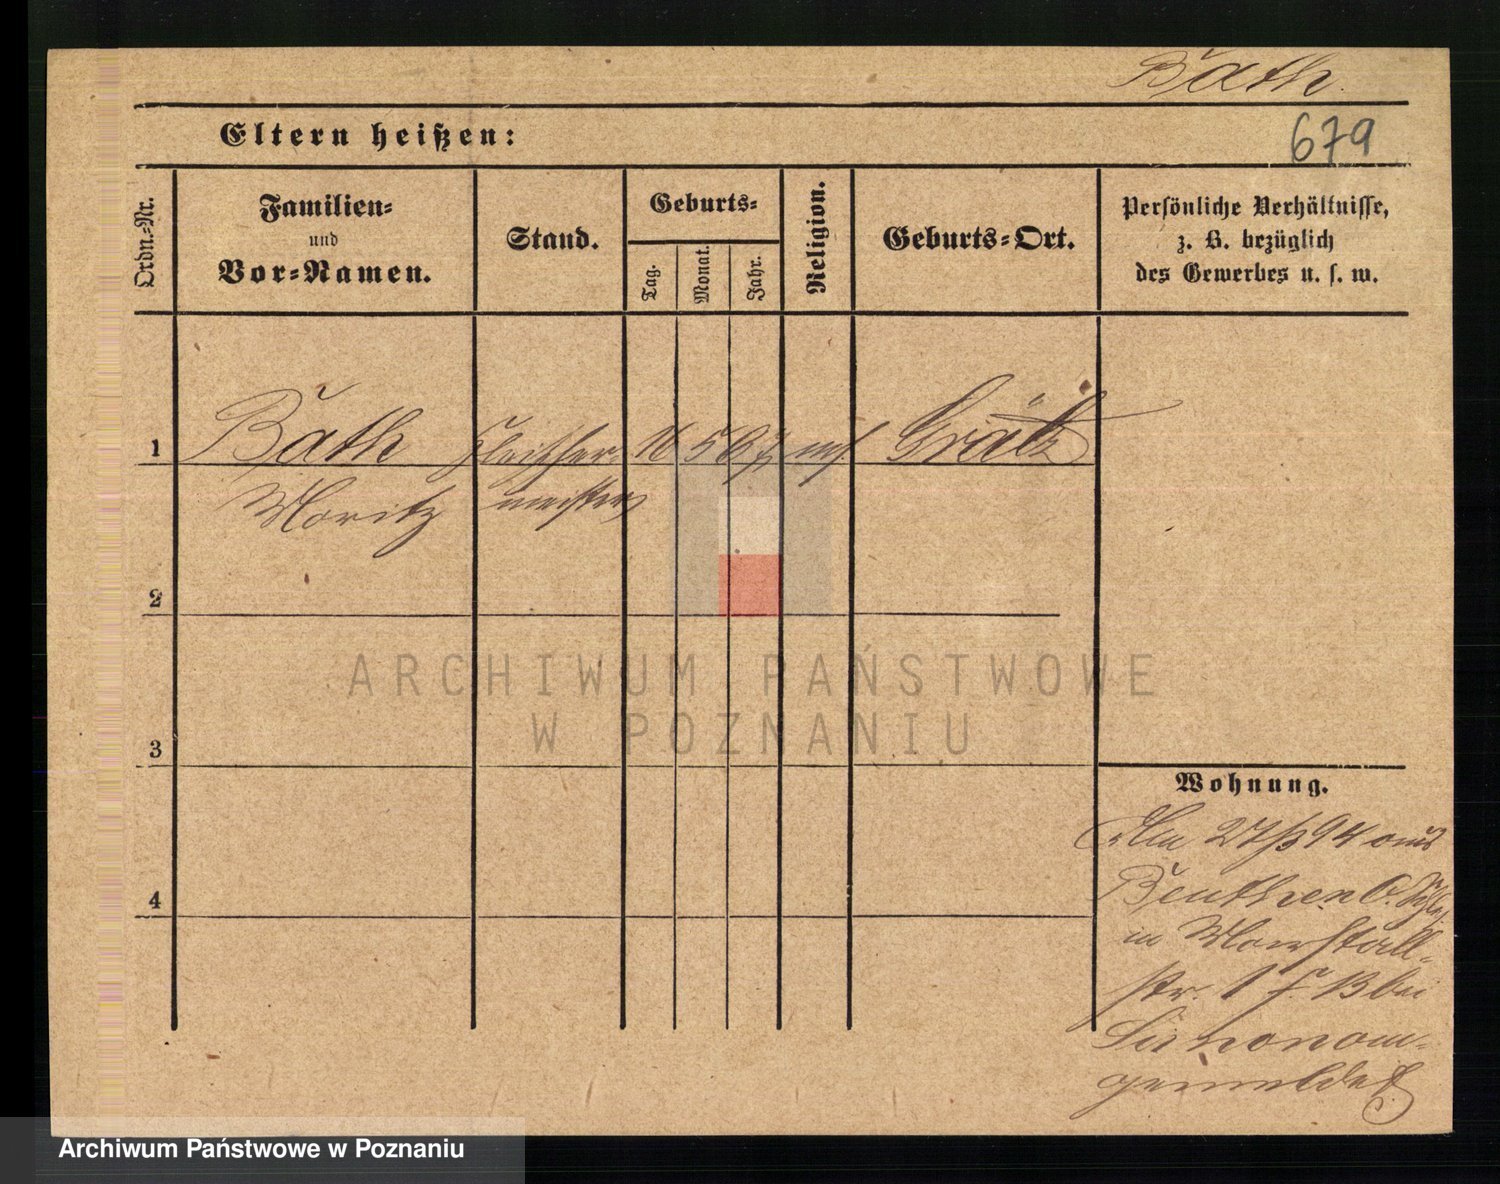 Bath.
679
Eltern heißen:
Ordn.-Nr.
Familien-
und
Vor-Namen.
Stand.
Geburts-
Tag.
Monat.
Jahr.
Religion.
Geburts-Ort.
Persönliche Verhältnisse,
z. B. bezüglich
des Gewerbes u. s. w.
1 Bath Fleischer- 16 5 67 mos. Grätz
Moritz meister
2
3
4
ARCHIWUM PAŃSTWOWE
W POZNANIU
Wohnung.
Am 27/3 94 aus
Beuthen O. Schl.
in Marstall-
str. 1 F. B bei
gemeldet
Archiwum Państwowe w Poznaniu